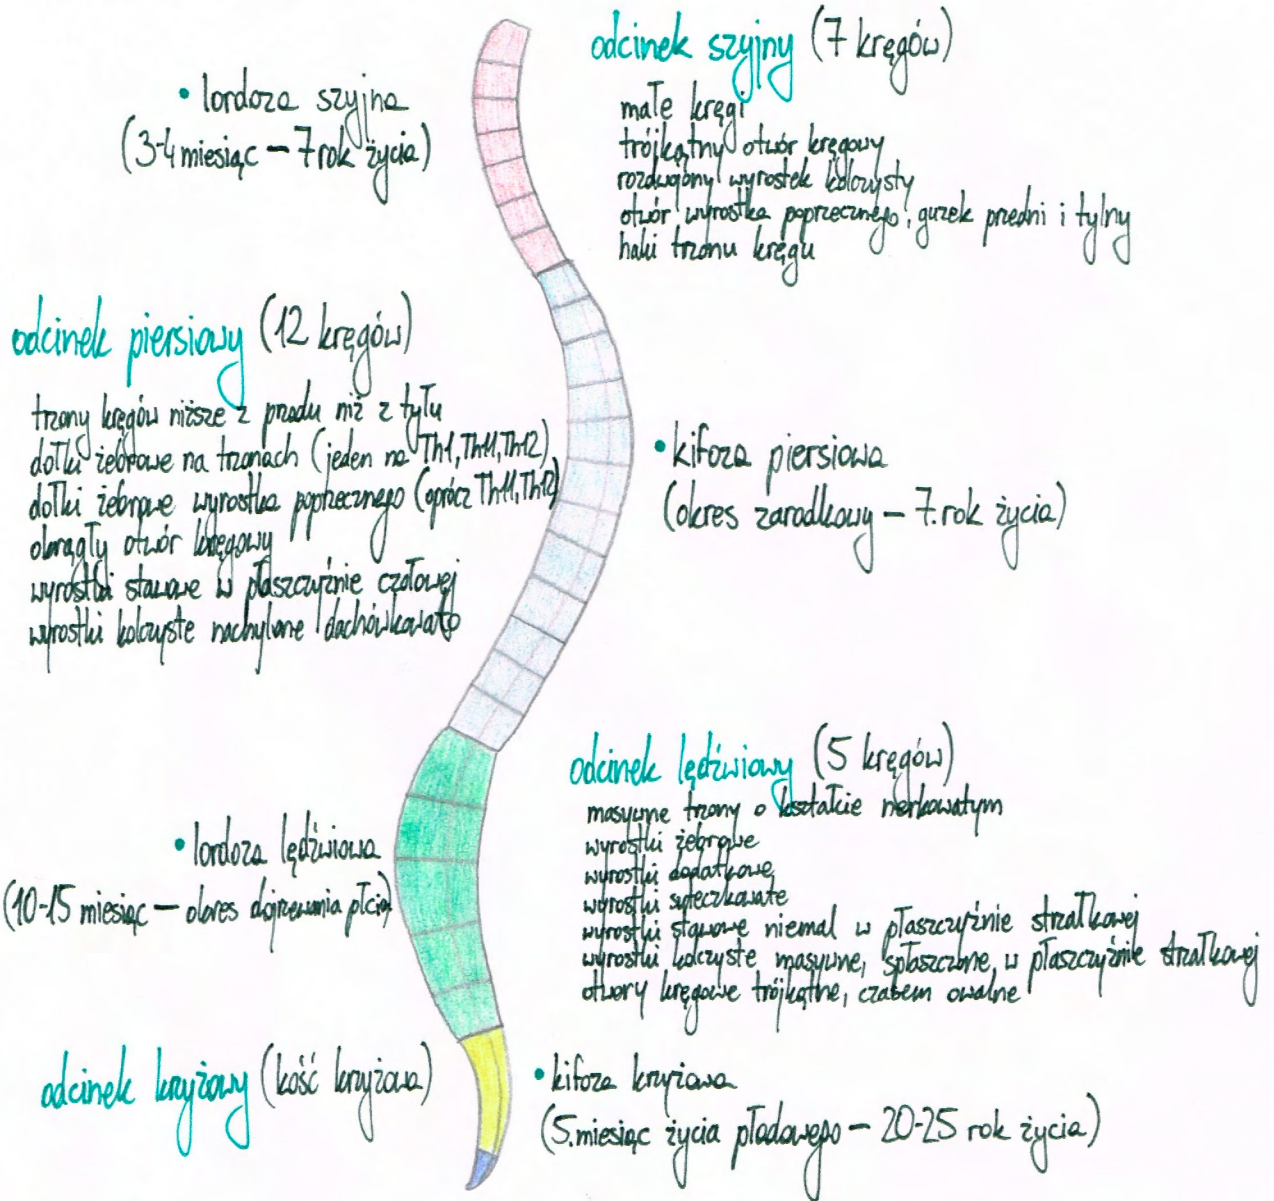 odcinek szyjny (7 kręgów)
małe kręgi
trójkątny otwór kręgowy
rozdwojony wyrostek kolczysty
otwór wyrostka poprzecznego, guzek przedni i tylny
haki trzonu kręgu
• lordoza szyjna
(3-4 miesiąc – 7 rok życia)
odcinek piersiowy (12 kręgów)
trzony kręgów niższe z przodu niż z tyłu
dołki żebrowe na trzonach (jeden na Th1, Th11, Th12)
dołki żebrowe wyrostka poprzecznego (oprócz Th11, Th12)
okrągły otwór kręgowy
wyrostki stawowe w płaszczyźnie czołowej
wyrostki kolczyste nachylone dachówkowato
• kifoza piersiowa
(okres zarodkowy – 7. rok życia)
odcinek lędźwiowy (5 kręgów)
masywne trzony o kształcie nerkowatym
wyrostki żebrowe
wyrostki dodatkowe
wyrostki suteczkowate
wyrostki stawowe niemal w płaszczyźnie strzałkowej
wyrostki kolczyste masywne, spłaszczone, w płaszczyźnie strzałkowej
otwory kręgowe trójkątne, czasem owalne
• lordoza lędźwiowa
(10-15 miesiąc – okres dojrzewania płcia)
odcinek krzyżowy (kość krzyżowa)
• kifoza krzyżowa
(5. miesiąc życia płodowego – 20-25 rok życia)